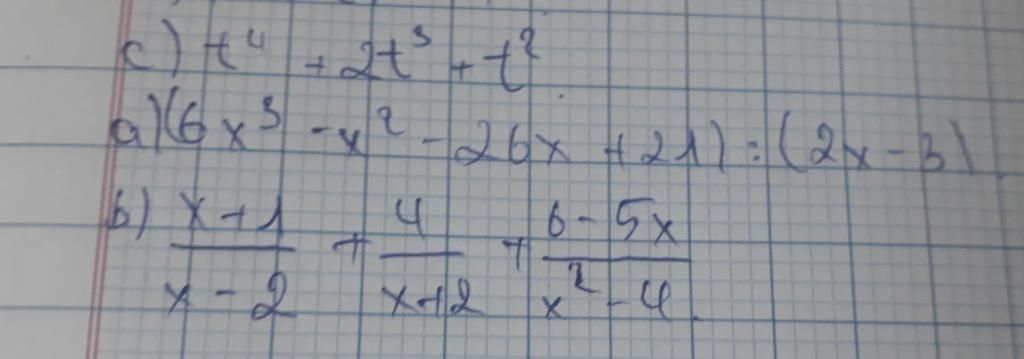 c) t⁴ + 2t³ + t²
a) (6x³ - x² - 26x + 21) : (2x - 3)
b) \frac{x+1}{x-2} + \frac{4}{x+2} + \frac{6-5x}{x²-4}.